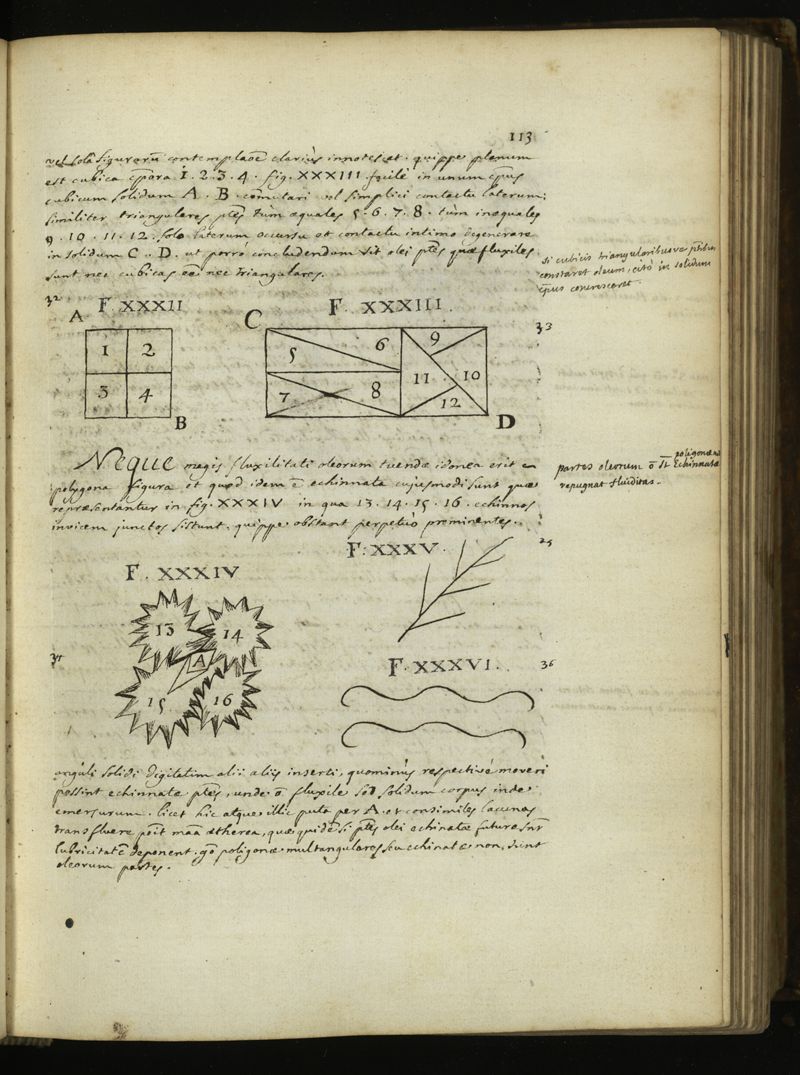 113
vel solâ figurarū contemplaōe clariùs innotescet. quippe planum
est cubica cp̄ora 1. 2. 3. 4. fig. XXXIII facilè in unum cp̄us
cubicum solidum A. B. com̄utari vel simplici contactu laterum;
similiter triangulares ptes̄ tùm æquales 5. 6. 7. 8. tùm inæquales
9. 10. 11. 12. solo laterum occursu et contactu intimo degenerare
in solidum C.. D. ut porrò concludendum sit olei ptes̄ quæ fluxiles
sunt nec cubicas eē nec triangulares.
si cubicis triangularibusve ptib̄us
constaret oleum, citò in solidum
cp̄us concresceret.
32
F. XXXII
A
1 2
3 4
B
F. XXXIII.
33
C
5 6
7 8
9
11 10
12
D
Neque magis fluxilitati oleorum tuendæ idonea erit
polygona figura et quod idem ē echinnata cujusmodi sunt quæ
repræsentantur in fig. XXXIV in qua 13. 14. 15. 16. echinnos
invicem junctos sistunt. quippe obstant perpetuò prominentes.
partes oleorum ō st̄ poligonæ
Echinnatæ
repugnat fluiditas.
F. XXXIV
13 14
A
15 16
F. XXXV.
F. XXXVI.
36
anguli solidi digitatim alii aliis inserti, quominùs respectivè moveri
possint echinnatæ ptes̄, unde ō fluxile sed solidum corpus inde
emersurum. licet hic atque illic puta per A. et consimiles lacunas
transfluere pōit māa ætherea, quæ quidē si ptes̄ olei echinatæ futuræ sn̄t
lubricitatē deponent. gō poligonæ multangulares seu echinatæ non sunt
oleorum partes.